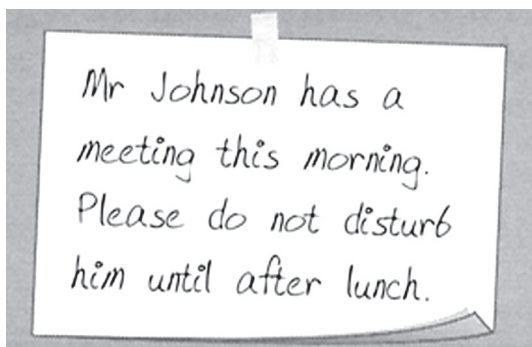 Mr Johnson has a
meeting this morning.
Please do not disturb
him until after lunch.